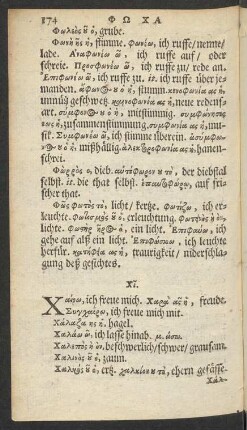 174 Φ Ω Χ Α
Φωλεὸς ῦ ὁ, grube.
Φωνὴ ῆς ἡ, stimme. φωνέω, ich ruffe/nenne/
lade. Ἀναφωνέω ῶ, ich ruffe auf/ oder
schreie. Προσφωνέω ῶ, ich ruffe zu/ rede an.
Ἐπιφωνέω ῶ, ich ruffe zu. it. ich ruffe über je-
manden. ἄφων@ ὁ ἡ, stumm. κενοφωνία ας ἡ,
unnütz geschwetz. καινοφωνία ας ἡ, neue redens-
art. σύμφων@ ὁ ἡ, mitstimmig. συμφώνησις
εως ἡ, zusammenstimmung. συμφωνία ας ἡ, mu-
sik. Συμφωνέω ῶ, ich stimme überein. ἀσύμφω-
ν@ ὁ ἡ, mißhällig. ἀλεκτροφωνία ας ἡ. hanen-
schrei.
Φώρ ρὸς ὁ, dieb. αὐτόφωρον τὸ, der diebstal
selbst. it. die that selbst. ἐπαυτοφώρῳ, auf fri-
scher that.
Φῶς φωτὸς τὸ, licht/ kertze. Φωτίζω, ich er-
leuchte. φωτισμὸς ῦ ὁ, erleuchtung. φωτεινὸς ὁ ἡ,
lichte. Φωστὴρ ῆρ@ ὁ, ein licht. Ἐπιφαύω, ich
gehe auf alß ein licht. Ἐπιφώσκω, ich leuchte
herfür. κατήφεια ας ἡ, traurigkeit/ niderschla-
gung deß gesichtes.
Χῖ.
Χαίρω, ich freue mich. Χαρὰ ᾶς ἡ, freude.
Συγχαίρω, ich freue mich mit.
Χάλαζα ης ἡ. hagel.
Χαλάω ῶ. ich lasse hinab.
Χαλεπὸς ἡ ὸν, beschwerlich/schwer/ grausam.
Χαλινὸς ῦ ὁ, zaum.
Χαλκὸς ῦ ὁ, ertz. χαλκίον ου τὸ, ehern gefässe.
Χάλ-